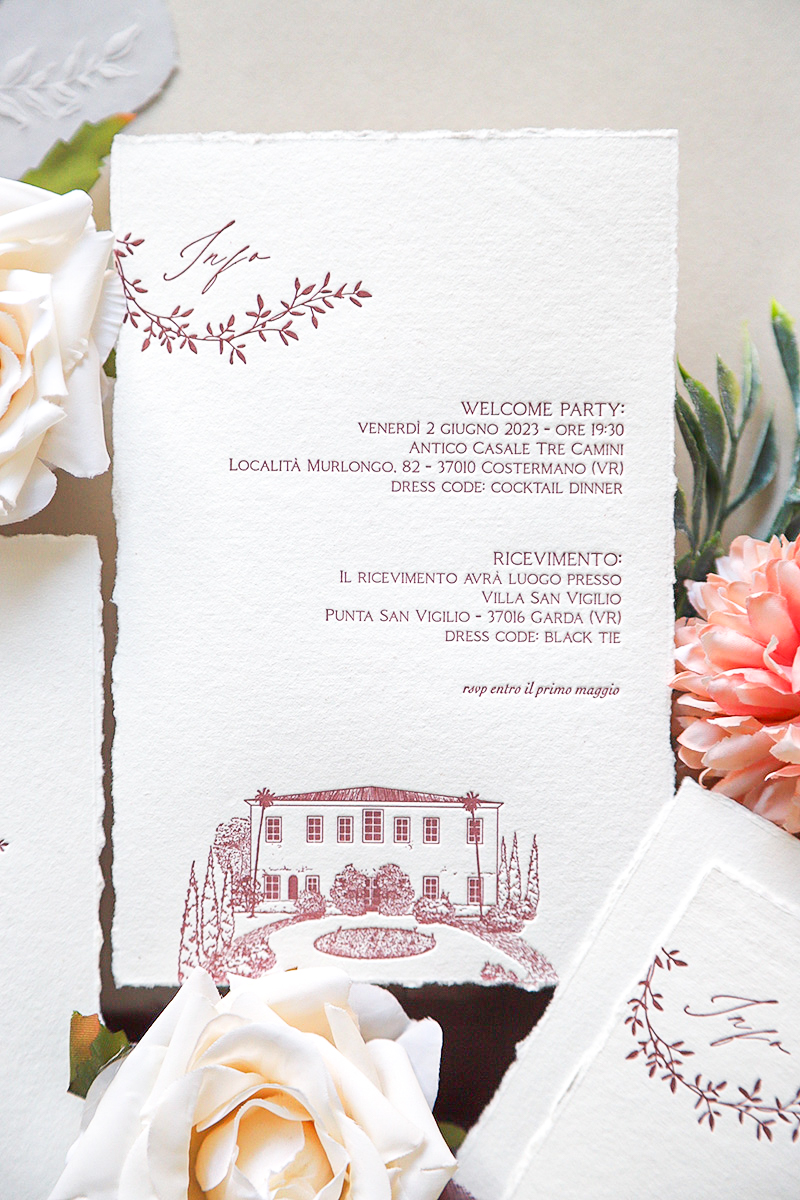 Info
WELCOME PARTY:
VENERDÌ 2 GIUGNO 2023 - ORE 19:30
ANTICO CASALE TRE CAMINI
LOCALITÀ MURLONGO, 82 - 37010 COSTERMANO (VR)
DRESS CODE: COCKTAIL DINNER
RICEVIMENTO:
IL RICEVIMENTO AVRÀ LUOGO PRESSO
VILLA SAN VIGILIO
PUNTA SAN VIGILIO - 37016 GARDA (VR)
DRESS CODE: BLACK TIE
rsvp entro il primo maggio
Info